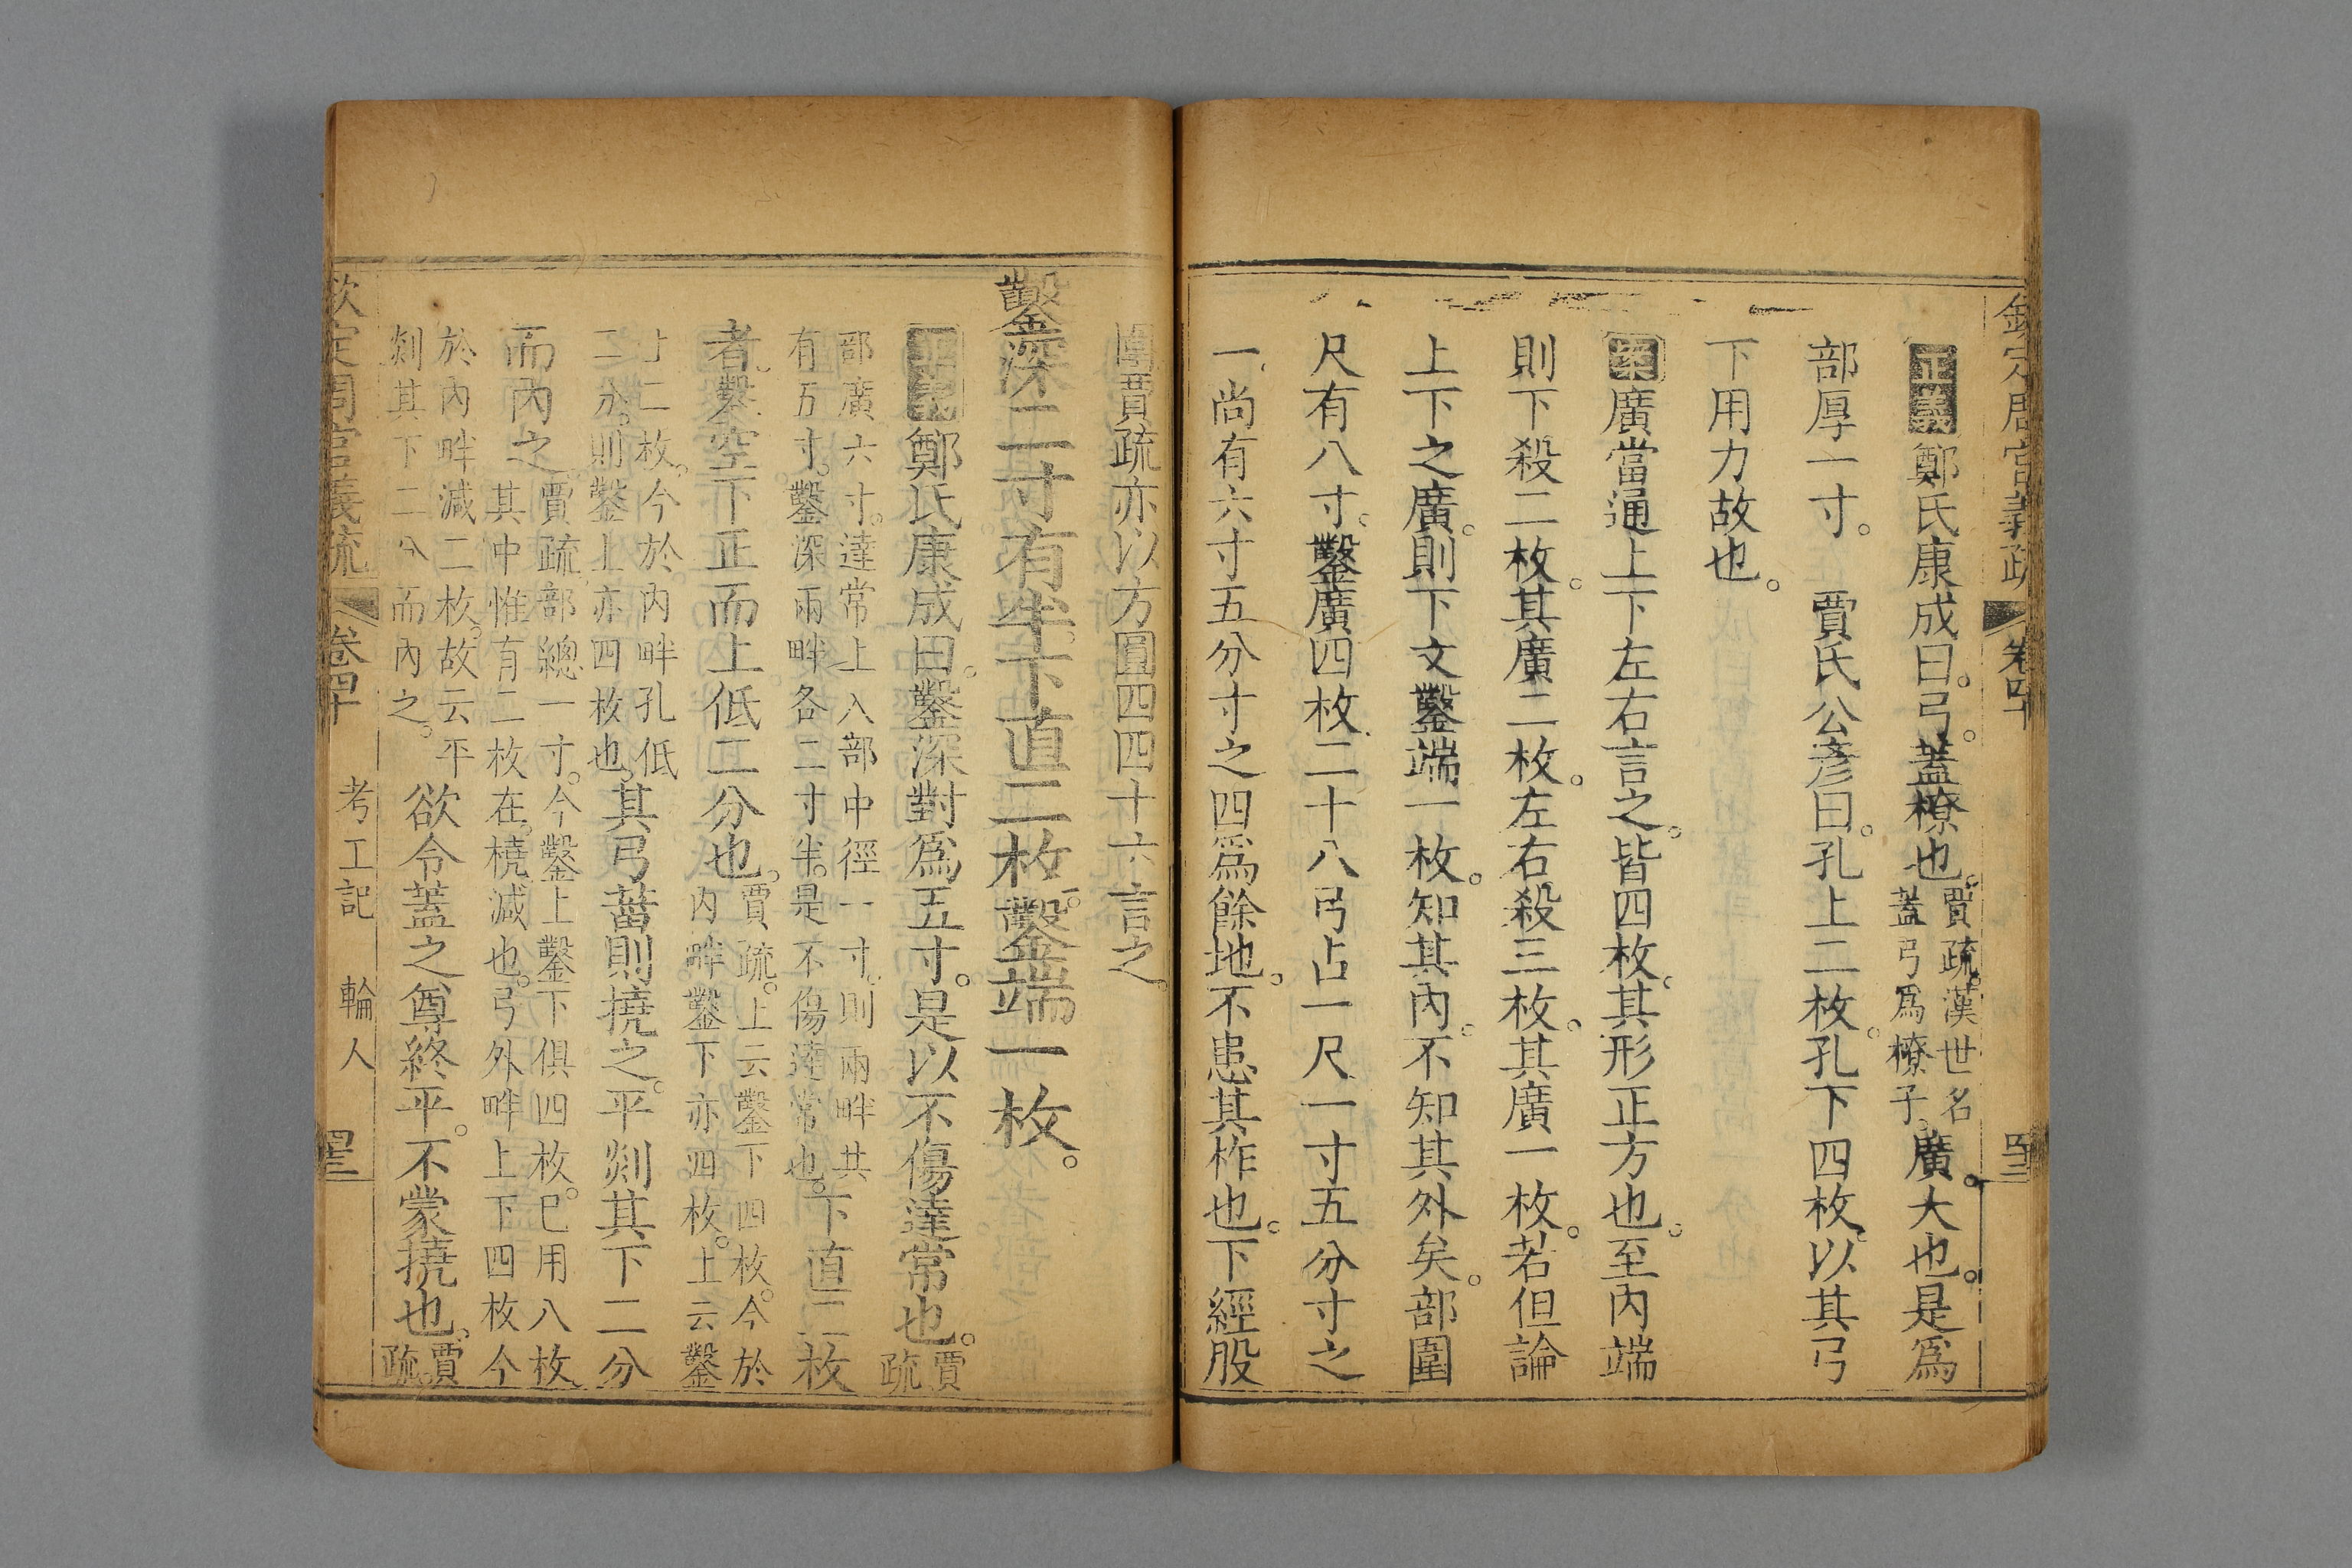 欽定周官義疏 卷四十
正義 鄭氏康成曰。弓。蓋橑也。賈疏。漢世名蓋弓爲橑子。廣。大也。是爲
部厚一寸。 賈氏公彥曰。孔上二枚。孔下四枚。以其弓
下用力故也。
案 廣當通上下左右言之。皆四枚。其形正方也。至內端
則下殺二枚。其廣二枚。左右殺三枚。其廣一枚。若但論
上下之廣。則下文鑿端一枚。知其內。不知其外矣。部圍
尺有八寸。鑿廣四枚。二十八弓占一尺一寸五分寸之
一。尚有六寸五分寸之四爲餘地。不患其柞也。下經股
圍賈疏亦以方圓四四十六言之。
鑿深二寸有半。下直二枚。鑿端一枚。
正義 鄭氏康成曰。鑿深對爲五寸。是以不傷達常也。賈疏
部廣六寸。達常上入部中徑一寸。則兩畔共有五寸。鑿深兩畔各二寸半。是不傷達常也。下直二枚
者。鑿空下正而上低二分也。賈疏。上云鑿下四枚。今於內畔鑿下亦四枚。上云鑿
上二枚。今於內畔孔低二分。則鑿上亦四枚也。其弓菑則撓之。平剡其下二分
而內之。賈疏。部總一寸。今鑿上鑿下俱四枚。已用八枚。其中惟有二枚在。橈減也。弓外畔上下四枚。今
於內畔減二枚。故云平剡其下二分而內之。欲令蓋之尊終平。不蒙撓也。賈疏
欽定周官義疏 卷四十 考工記 輪人